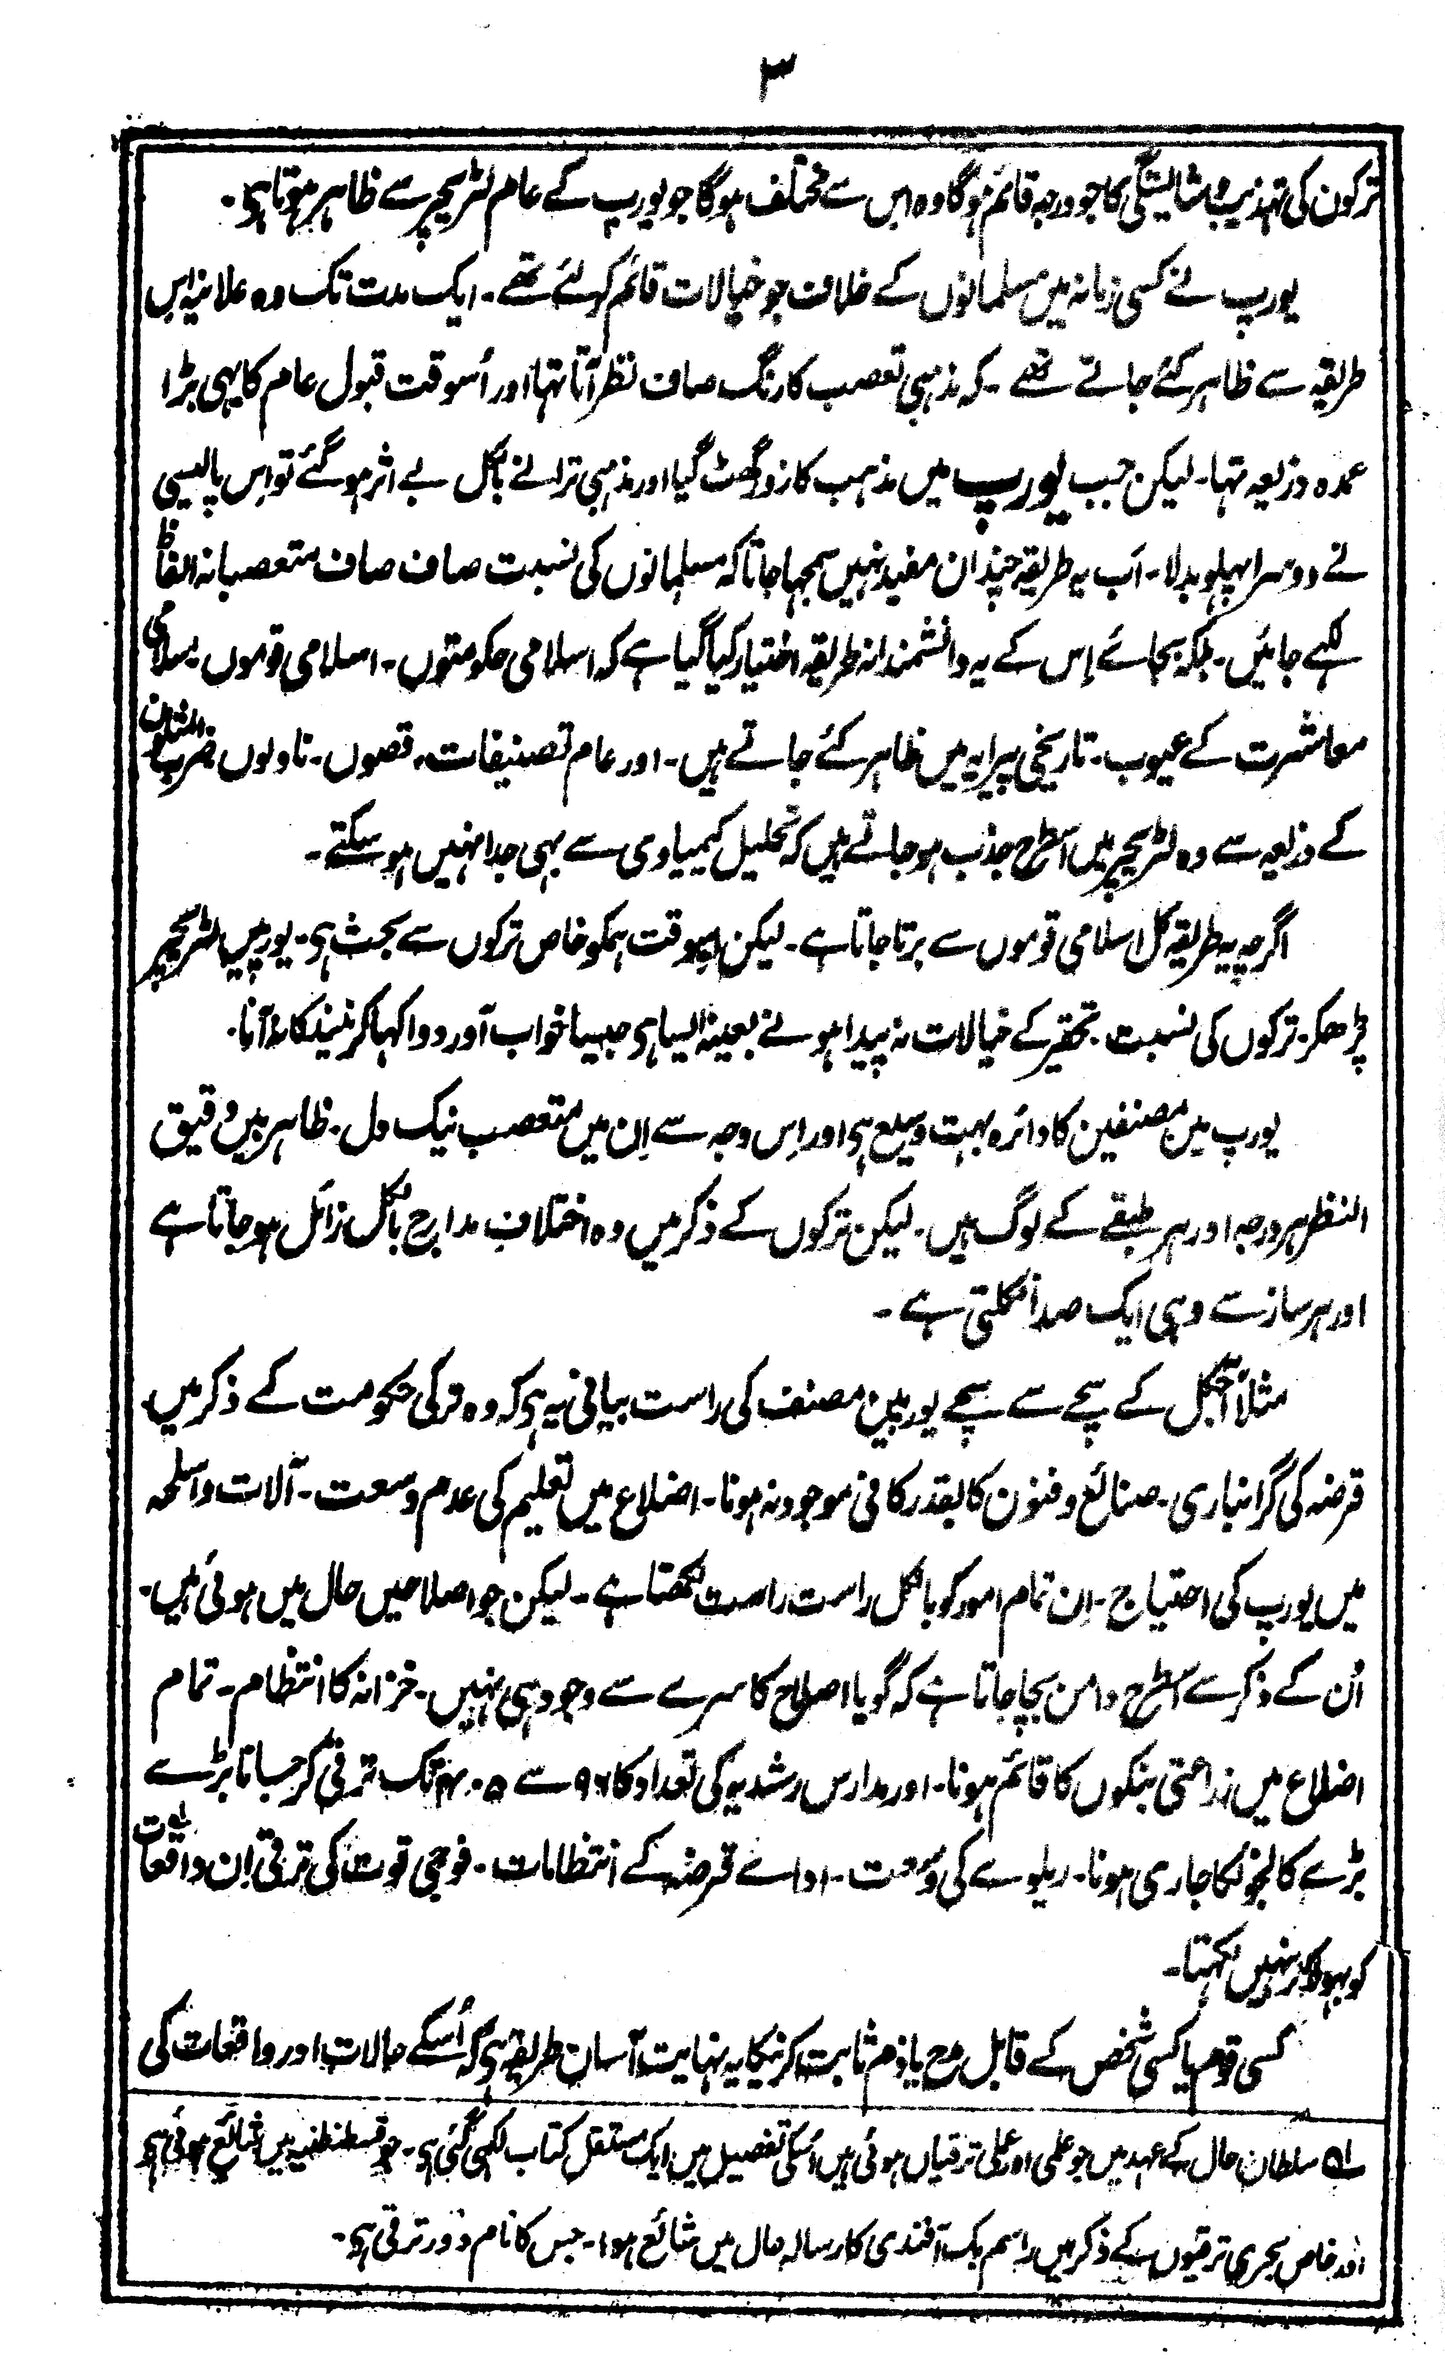 ۳
ترکون کی تہذیب و شایستگی کا جو درجہ قائم ہوگا وہ اس سے مختلف ہوگا جو یورپ کے عام لٹریچر سے ظاہر ہوتا ہی۔
یورپ نے کسی زمانہ میں مسلمانوں کے خلاف جو خیالات قائم کر لئے تھے۔ ایک مدت تک وہ علانیہ اِس
طریقہ سے ظاہر کئے جاتے تھے۔ کہ مذہبی تعصب کا رنگ صاف نظر آتا تہا اور اُسوقت قبول عام کا یہی بڑا
عمدہ ذریعہ تہا۔ لیکن جب یورپ میں مذہب کا زور گھٹ گیا اور مذہبی ترانے بالکل بے اثر ہو گئے تو اِس پالیسی
نے دوسرا پہلو بدلا۔ اَب یہ طریقہ چندان مفید نہیں سمجہا جاتا کہ مسلمانوں کی نسبت صاف صاف متعصبانہ الفاظ
لکہے جائیں۔ بلکہ بجائے اِس کے یہ دانشمندانہ طریقہ اختیار کیا گیا ہے کہ اسلامی حکومتوں۔ اسلامی قوموں۔ اسلامی
معاشرت کے عیوب۔ تاریخی پیرایہ میں ظاہر کئے جاتے ہیں۔ اور عام تصنیفات۔ قصوں۔ ناولوں ضرب المثلون
کے ذریعہ سے وہ لٹریچر میں اسطرح جذب ہو جاتے ہیں کہ تحلیل کیمیاوی سے بہی جدا نہیں ہو سکتے۔
اگرچہ یہ طریقہ کل اسلامی قوموں سے برتا جاتا ہے۔ لیکن اِسوقت ہمکو خاص ترکوں سے بحث ہی۔ یورپین لٹریچر
پڑھکر۔ ترکوں کی نسبت۔ تحقیر کے خیالات نہ پیدا ہونے بعینہ ایسا ہی جیسا خواب آور دوا کہا کر نیند کا نہ آنا۔
یورپ میں مصنفین کا دائرہ بہت وسیع ہی اور اِس وجہ سے اِن میں متعصب نیک دل۔ ظاہر بین دقیق
النظر ہر درجہ اور ہر طبقے کے لوگ ہیں۔ لیکن ترکوں کے ذکر میں وہ اختلافِ مدارج بالکل زائل ہو جاتا ہے
اور ہر ساز سے وہی ایک صدا نکلتی ہے۔
مثلاً آجکل کے سچے سے سچے یورپین مصنف کی راست بیانی یہ ہی کہ وہ ترکی حکومت کے ذکر میں
قرضہ کی گرانباری۔ صنائع و فنون کا بقدر کافی موجود نہ ہونا۔ اضلاع میں تعلیم کی عدم وسعت۔ آلات و اسلحہ
میں یورپ کی احتیاج۔ اِن تمام امور کو بالکل راست راست لکھتا ہے۔ لیکن جو اصلاحیں حال میں ہوئی ہیں۔
اُن کے ذکر سے اسطرح دامن بچا جاتا ہے کہ گویا اصلاح کا سرے سے وجود ہی نہیں۔ خزانہ کا انتظام۔ تمام
اضلاع میں زراعتی بنکوں کا قائم ہونا۔ اور مدارس رشدیہ کی تعداد کا ۹۶ سے ۴۰۵ تک ترقی کر جانا بڑے
بڑے کالجونکا جاری ہونا۔ ریلوے کی وسعت۔ اداے قرضہ کے انتظامات۔ فوجی قوت کی ترقی اِن واقعات
کو بہول کر نہیں لکہتا۔
کسی قوم یا کسی شخص کے قابل مدح یا ذم ثابت کرنیکا یہ نہایت آسان طریقہ ہی کہ اُسکے حالات اور واقعات کی
لہ سلطان حال کے عہد میں جو علمی اور عملی ترقیاں ہوئی ہیں اُسکی تفصیل میں ایک مستقل کتاب لکہی گئی ہی۔ جو قسطنطنیہ میں شائع ہوئی ہی
اور خاص بحری ترقیوں کے ذکر میں راسم بک آفندی کا رسالہ حال میں شائع ہوا۔ جس کا نام دور ترقی ہی۔